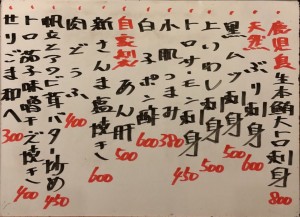 鹿児島生本鮪大トロ刺身 800
天然ぶり刺身 500
黒ムツ刺身 500
上いわし刺身 500
トロサーモン刺身 450
小肌つまみ 380
白子ポン酢 600
自家製あん肝 500
新さんま塩焼き 600
肉どうふ 400
帆立とアワビ茸バター炒め 450
トロ茄子味噌チーズ焼き 400
せりごま和へ 300